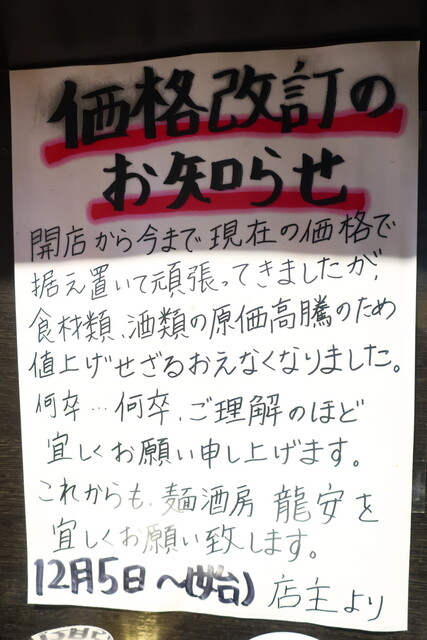 価格改訂の
お知らせ
開店から今まで現在の価格で
据え置いて頑張ってきましたが、
食材類、酒類の原価高騰のため
値上げせざるおえなくなりました。
何卒…何卒、ご理解のほど
宜しくお願い申し上げます。
これからも、麺酒房 龍安を
宜しくお願い致します。
12月5日〜(始) 店主より